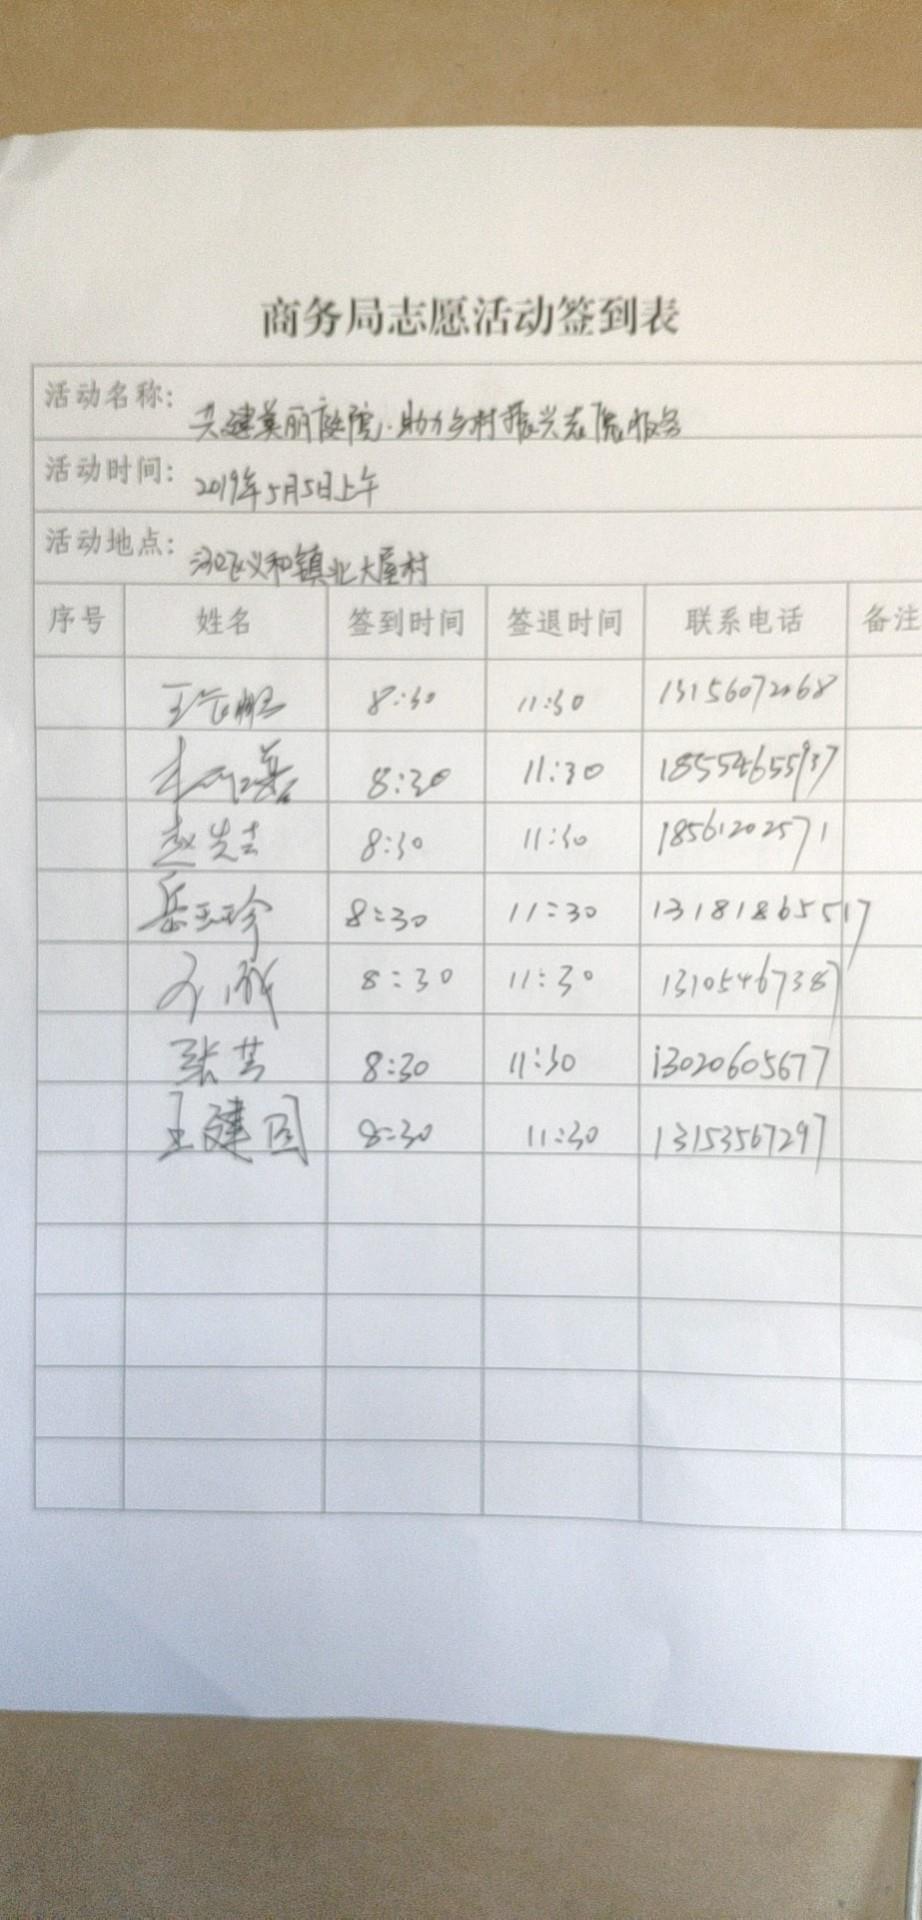 商务局志愿活动签到表
活动名称: 共建美丽庭院·助力乡村振兴志愿服务
活动时间: 2019年5月5日上午
活动地点: 河口区义和镇北大屋村
序号 姓名 签到时间 签退时间 联系电话 备注
8:30 11:30 13156072068
8:30 11:30 18554655937
赵先吉 8:30 11:30 18561202571
岳玉珍 8:30 11:30 13181865517
8:30 11:30 13105467387
张芸 8:30 11:30 13020605677
王建国 8:30 11:30 13153567297